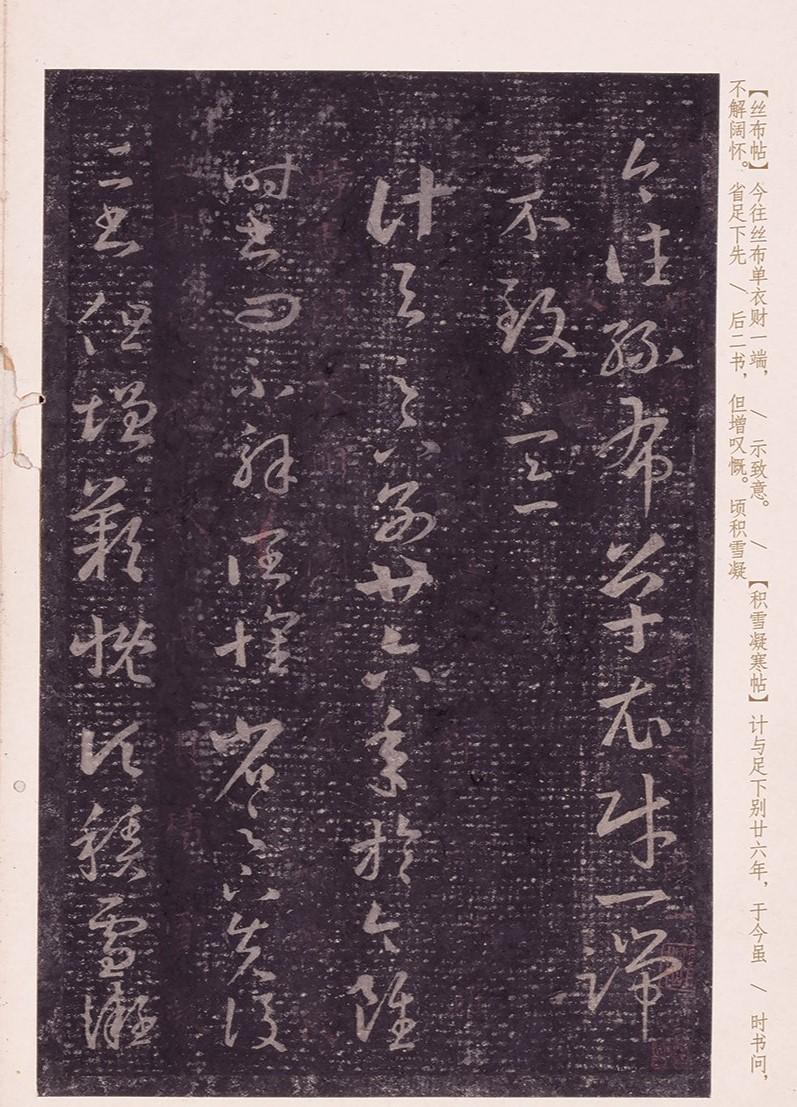 【丝布帖】今往丝布单衣财一端，/ 示致意。/【积雪凝寒帖】计与足下别廿六年，于今虽 / 时书问，
不解阔怀。省足下先 / 后二书，但增叹慨。顷积雪凝
今往絲布單衣財一端
示致意
計與足下別廿六年於今雖
時書問不解闊懷省足下先後
二書但增歎慨頃積雪凝